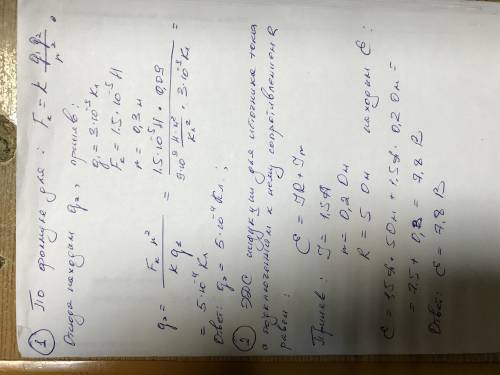 ① По формуле для: Fₖ = k q₁q₂/r².
Отсюда находим q₂, приняв:
q₁ = 3·10⁻⁵ Кл
Fₖ = 1.5·10⁻⁵ Н
r = 0,3 м
q₂ = Fₖ r² / k q₁ = 1.5·10⁻⁵ Н · 0,09 / 9·10⁹ Н·м²/Кл² · 3·10⁻⁵ Кл =
= 5·10⁻⁴ Кл
Ответ: q₂ = 5·10⁻⁴ Кл;
② ЭДС индукции для источника тока
с подключенным к нему сопротивлением R
равен:
ℰ = IR + Ir
Приняв: I = 1.5А
r = 0,2 Ом
R = 5 Ом находим ℰ:
ℰ = 1.5А · 5 Ом + 1.5А · 0.2 Ом =
= 7.5 + 0,3 = 7,8 В
Ответ: ℰ = 7,8 В